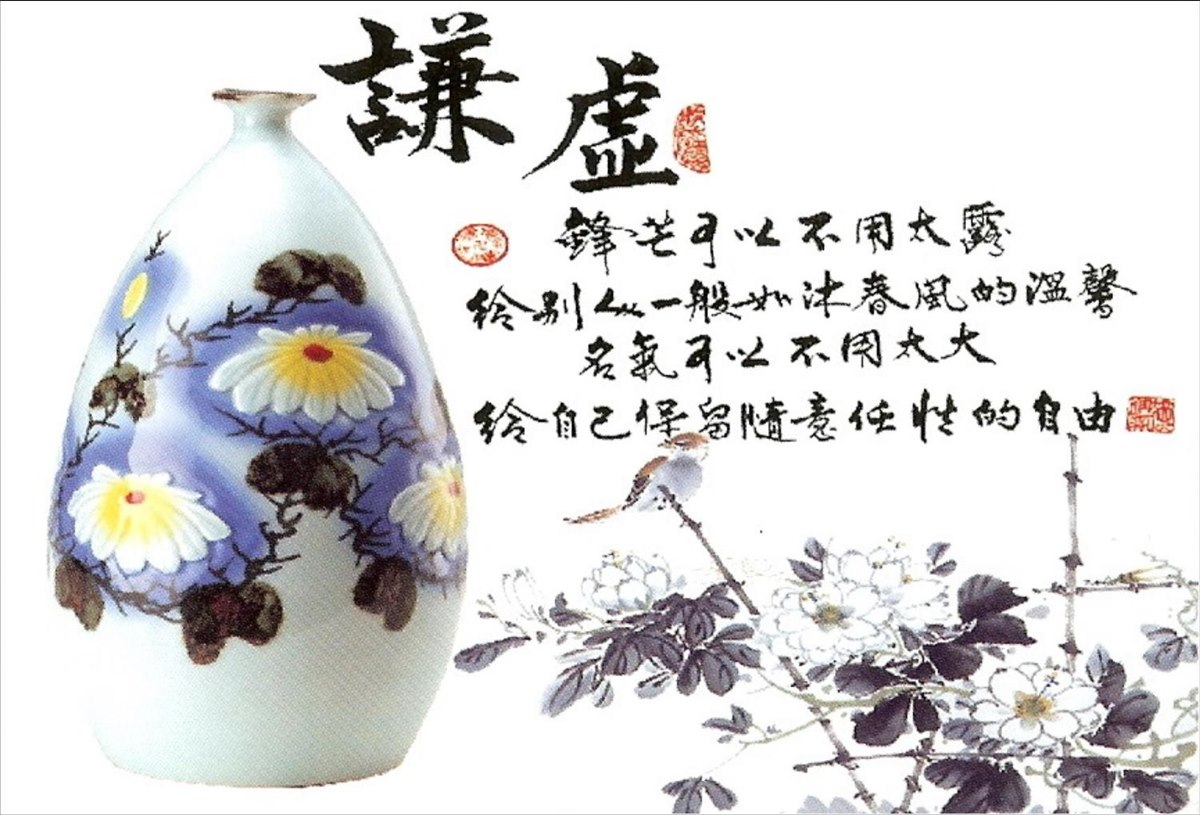 謙虛
鋒芒可以不用太露
給別人一般如沐春風的溫馨
名氣可以不用太大
給自己保留隨意任性的自由